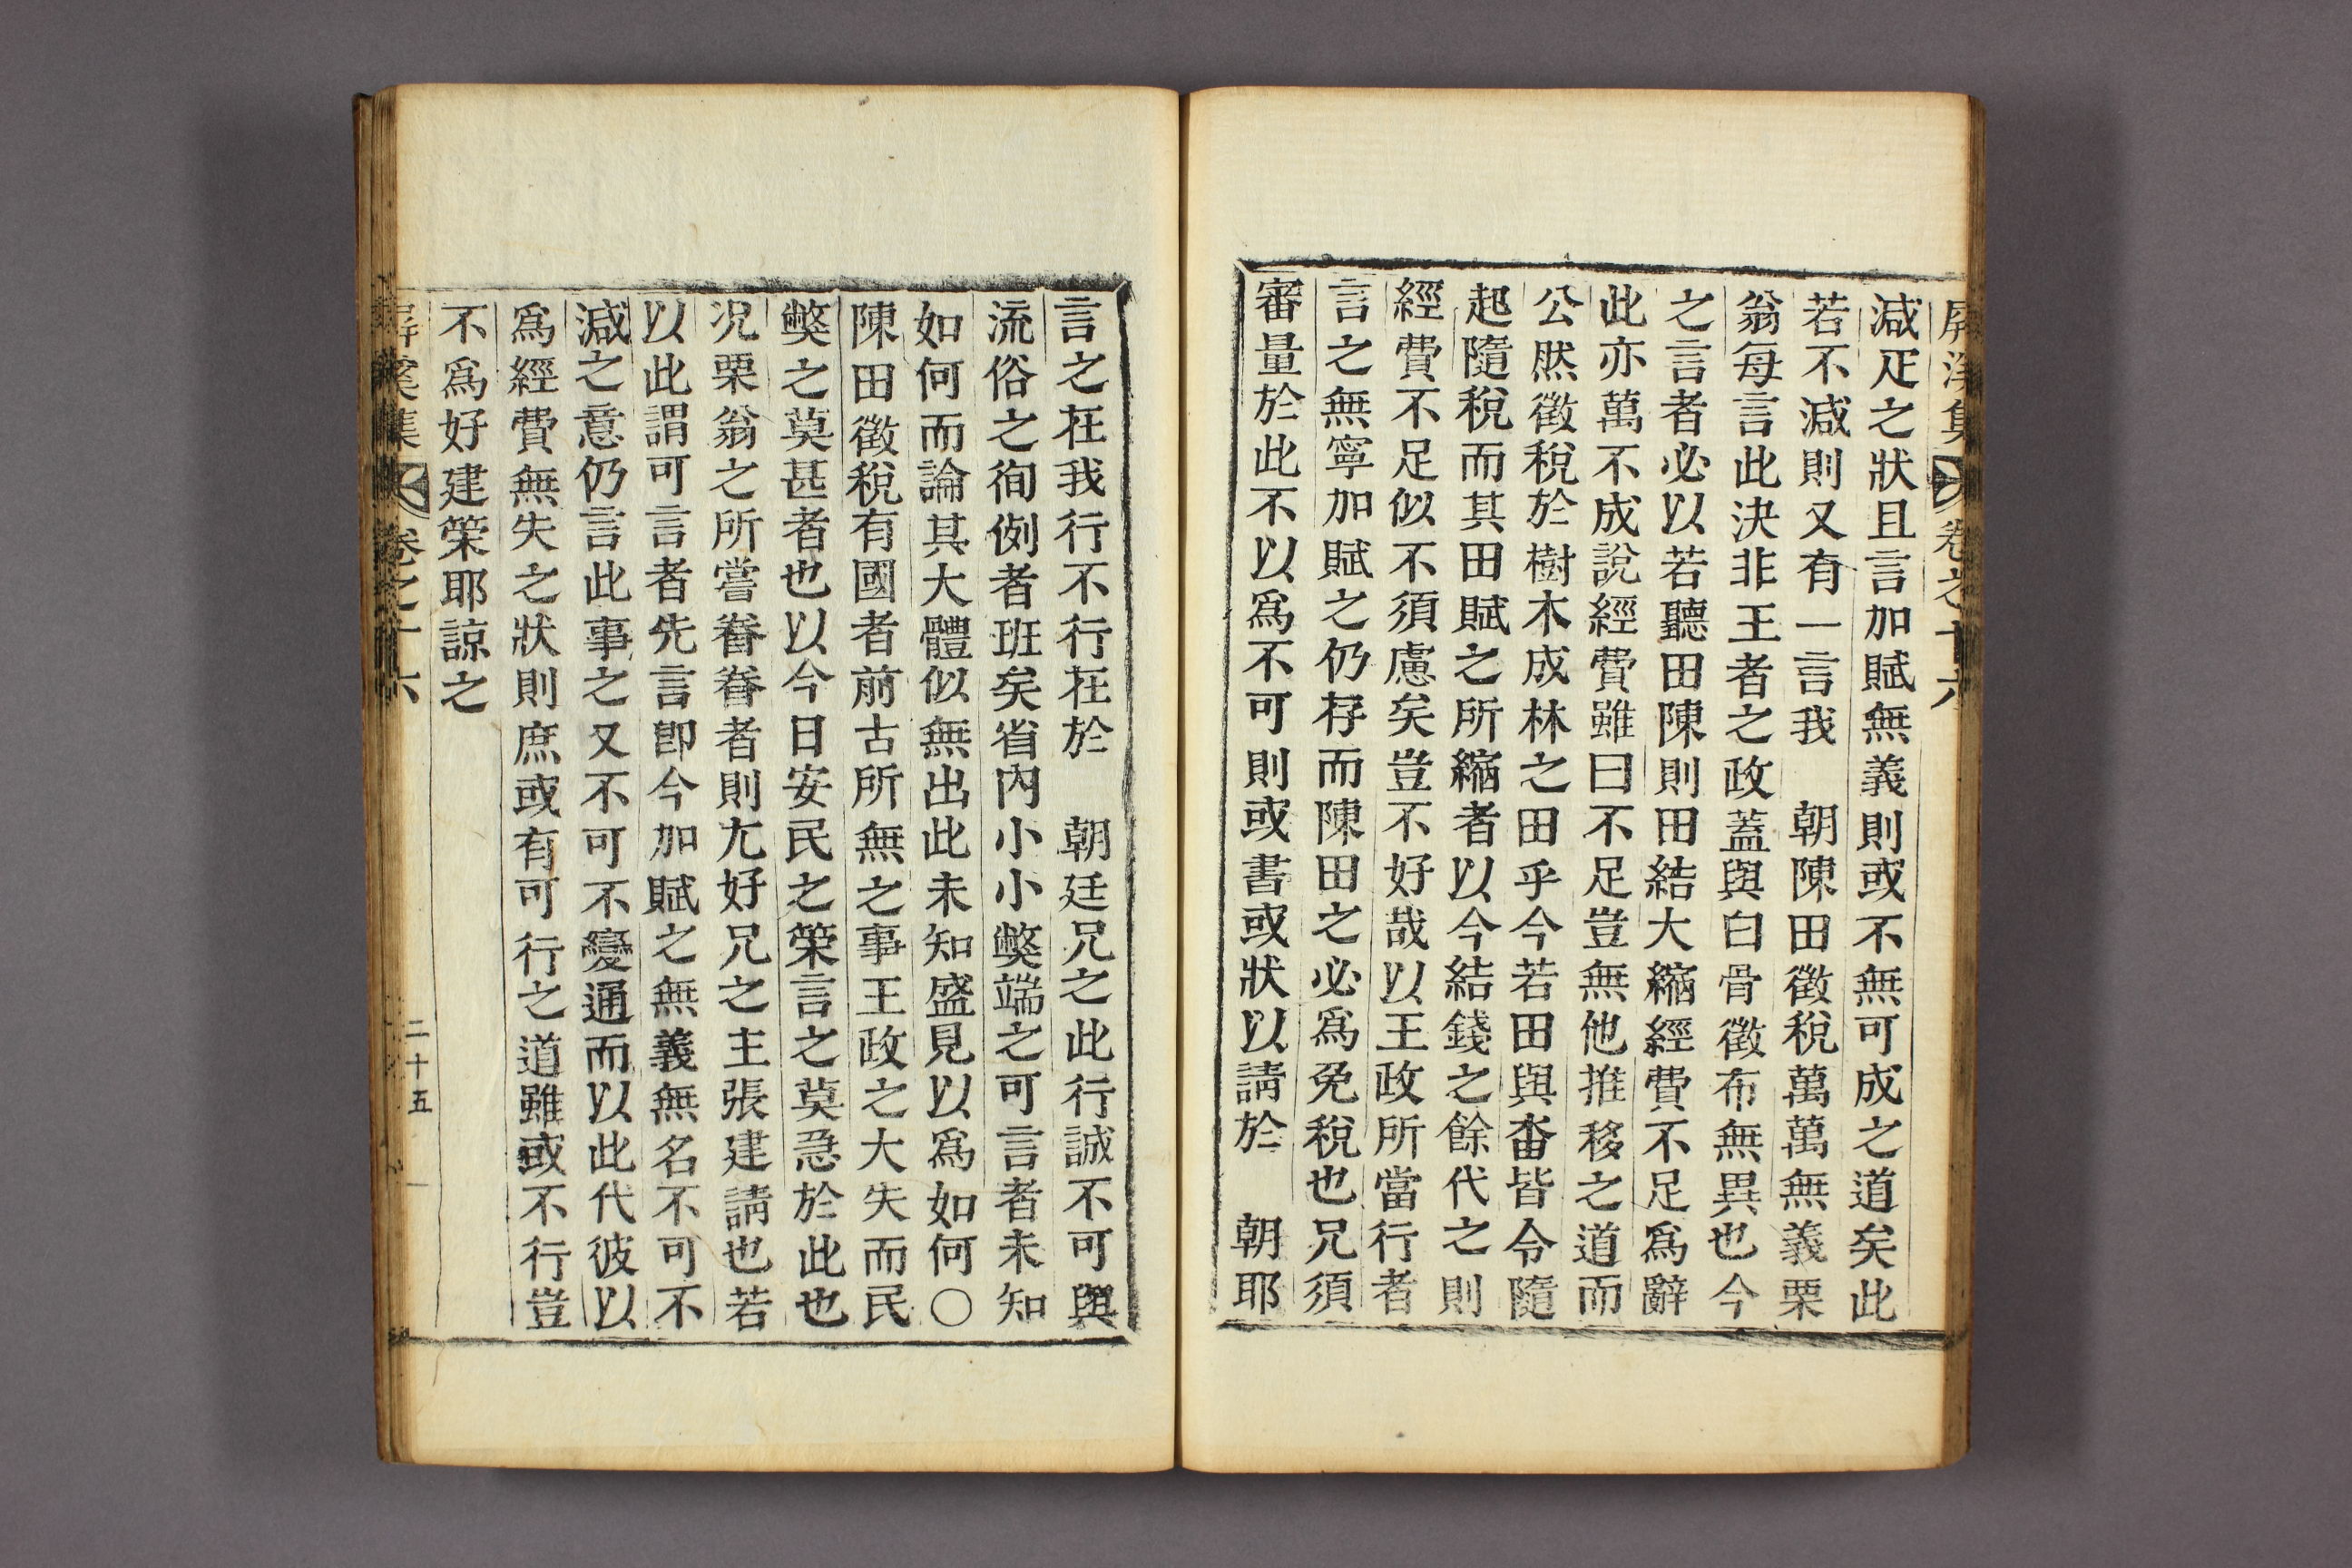 屏溪集 卷之十六
減疋之狀且言加賦無義則或不無可成之道矣此
若不減則又有一言我 朝陳田徵稅萬萬無義栗
翁每言此決非王者之政蓋與白骨徵布無異也今
之言者必以若聽田陳則田結大縮經費不足爲辭
此亦萬不成說經費雖曰不足豈無他推移之道而
公然徵稅於樹木成林之田乎今若田與畓皆令隨
起隨稅而其田賦之所縮者以今結錢之餘代之則
經費不足似不須慮矣豈不好哉以王政所當行者
言之無寧加賦之仍存而陳田之必爲免稅也兄須
審量於此不以爲不可則或書或狀以請於 朝耶
言之在我行不行在於 朝廷兄之此行誠不可與
流俗之徇例者班矣省內小小獘端之可言者未知
如何而論其大體似無出此未知盛見以爲如何○
陳田徵稅有國者前古所無之事王政之大失而民
獘之莫甚者也以今日安民之策言之莫急於此也
况栗翁之所嘗眷眷者則尤好兄之主張建請也若
以此謂可言者先言卽今加賦之無義無名不可不
減之意仍言此事之又不可不變通而以此代彼以
爲經費無失之狀則庶或有可行之道雖或不行豈
不爲好建策耶諒之
屏溪集 卷之十六 二十五